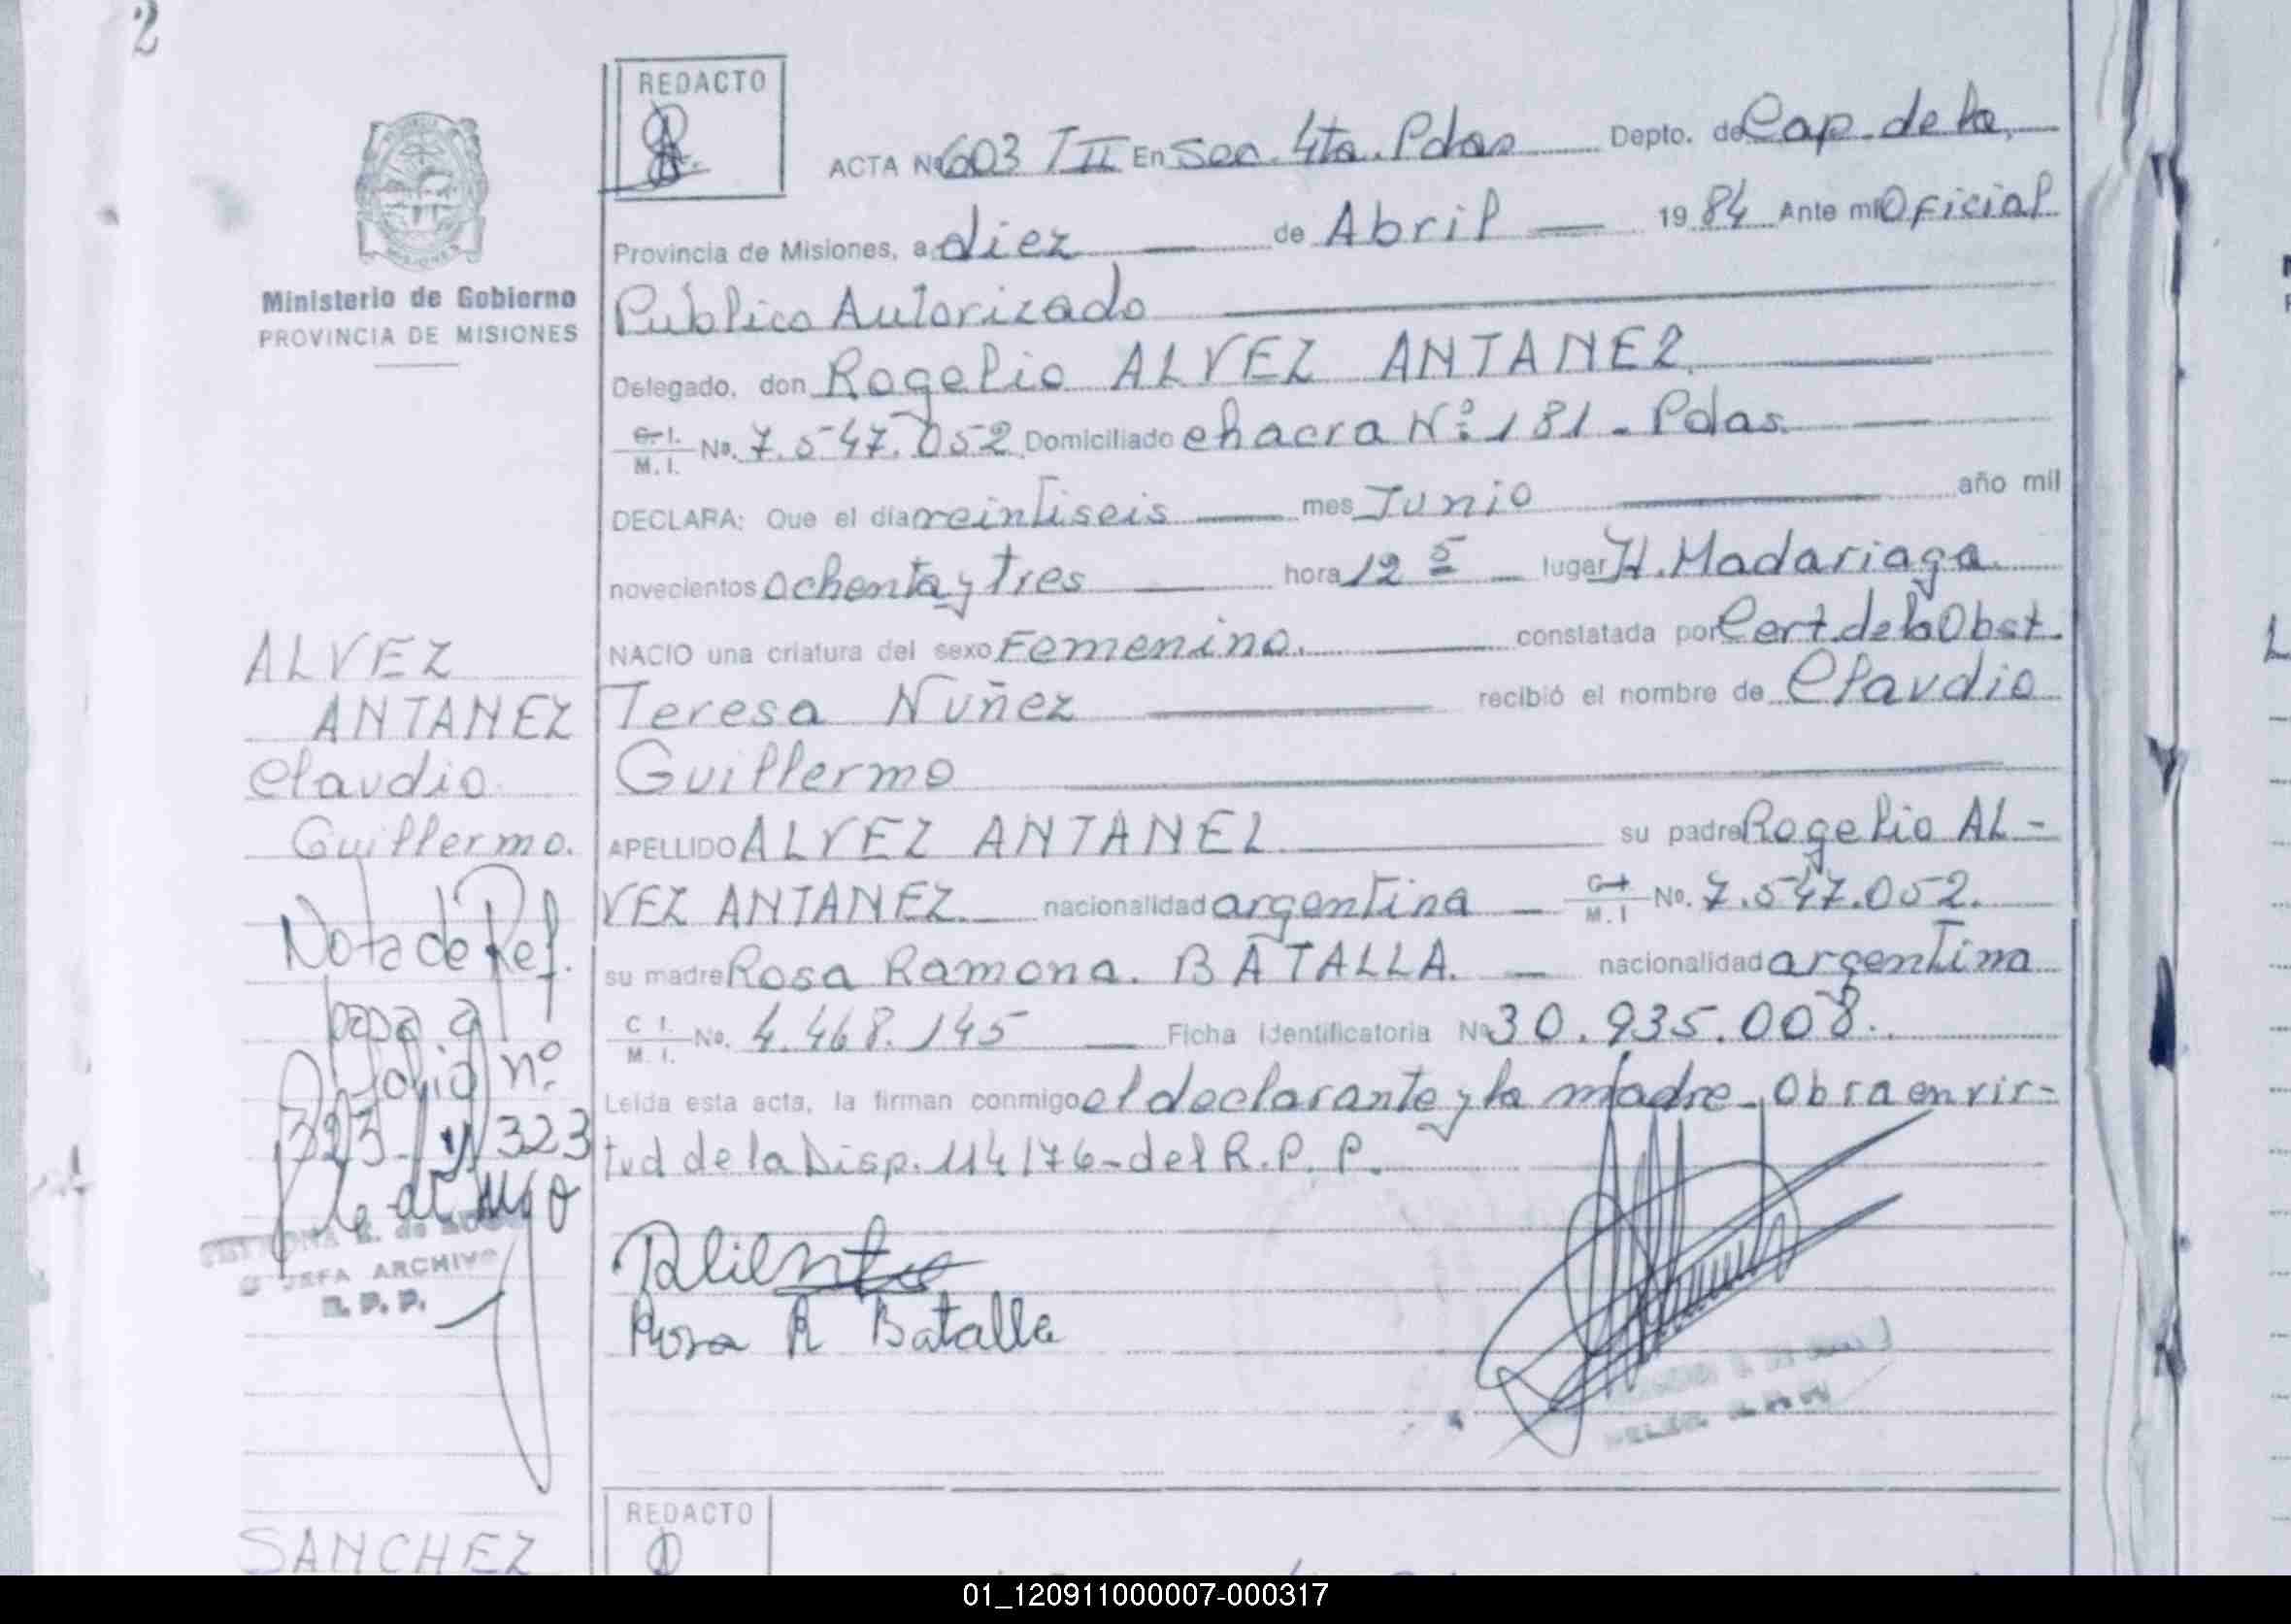 2
REDACTO
ACTA Nº 603 TII En Sec. 4ta. Pdas Depto. de Cap. de la
Provincia de Misiones, a diez de Abril 1984 Ante mi Oficial
Publico Autorizado
Ministerio de Gobierno
PROVINCIA DE MISIONES
Delegado, don Rogelio ALVEZ ANTANEZ.
C. I. M. I. No. 7.547.052 Domiciliado chacra Nº 181 - Pdas.
DECLARA: Que el día veintiseis mes Junio año mil
novecientos ochenta y tres hora 12 5 lugar H. Madariaga.
NACIO una criatura del sexo Femenino. constatada por Cert. de la Obst.
Teresa Nuñez recibió el nombre de Claudio
Guillermo
APELLIDO ALVEZ ANTANEZ su padre Rogelio AL-
VEZ ANTANEZ. nacionalidad argentina C. I. M. I No. 7.547.052.
su madre Rosa Ramona. BATALLA. nacionalidad argentina
C I. M. I. No. 4.468.145 Ficha identificatoria Nº 30.935.008.
Leída esta acta, la firman conmigo el declarante y la madre - Obra en vir-
tud de la Disp. 114/76 - del R.P.P.
Rosa R Batalla
ALVEZ
ANTANEZ
Claudio
Guillermo.
Nota de Ref.
pasa a
folio nº
323 y 323
JEFA ARCHIVO
R. P. P.
REDACTO
SANCHEZ
01_120911000007-000317